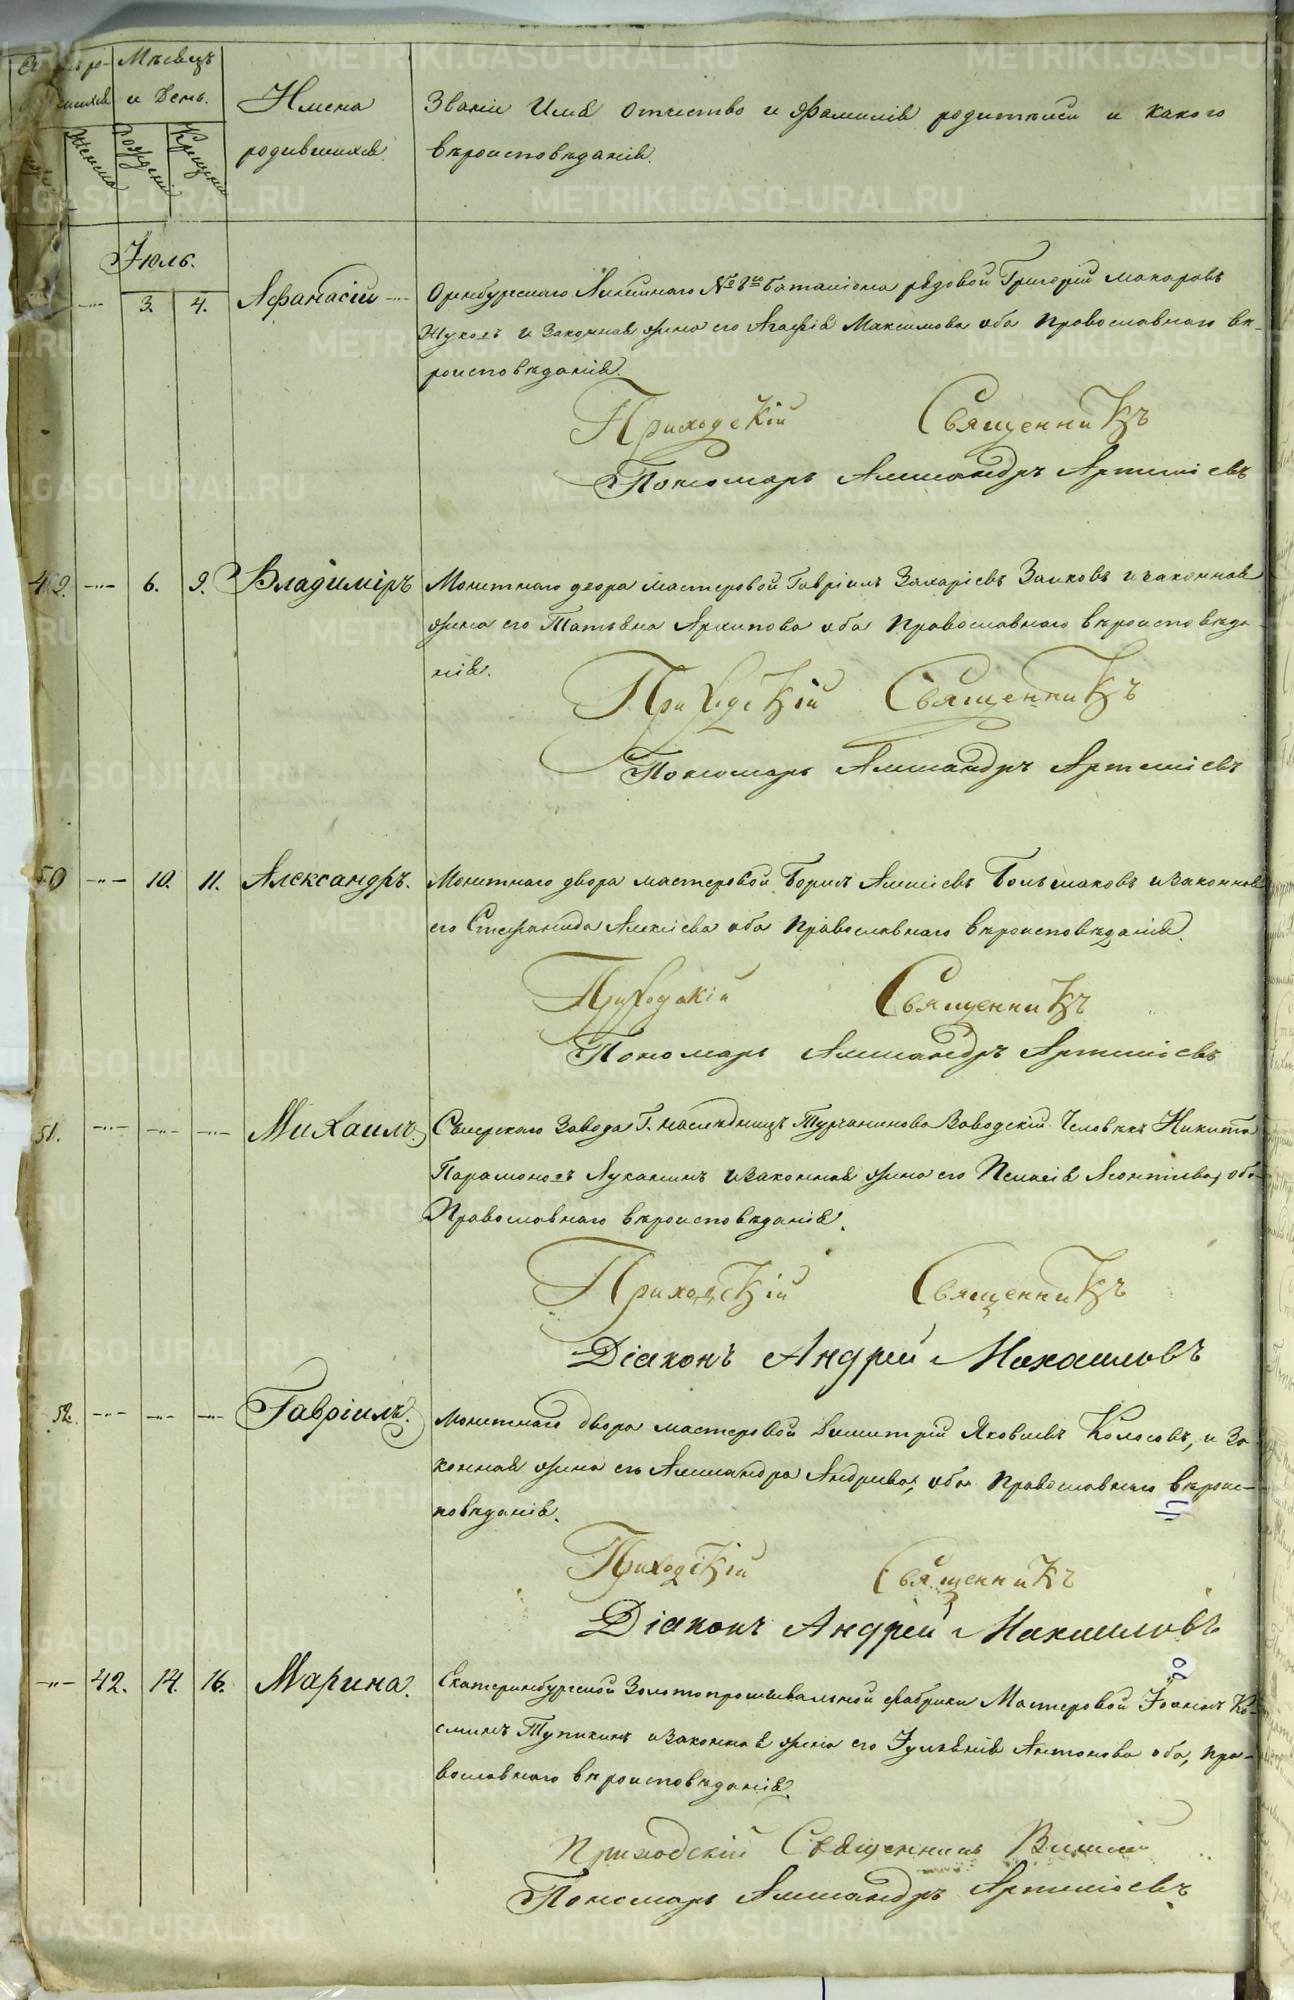 Мѣсяцъ
и День.
Имена
родившихся.
Званіе Имя Отчество и Фамилія родителей и какого
вѣроисповѣданія.
Женска
Рожденія
Крещенія
Іюль.
3. 4. Афанасій
Оренбургскаго Линейнаго № баталіона рядовой Григорій Макаровъ
Жуковъ и Законная жена его Агафія Максимова оба Православнаго вѣ-
роисповѣданія.
Приходскій Священникъ
Пономарь Александръ Артеміевъ
49. 6. 9. Владиміръ
Монетнаго двора мастеровой Гавріилъ Захаріевъ Заиковъ и законная
жена его Татьяна Архипова оба Православнаго вѣроисповѣда-
нія.
Приходскій Священникъ
Пономарь Александръ Артеміевъ
50 10. 11. Александръ.
Монетнаго двора мастеровой Борисъ Алексіевъ Большаковъ и Законная
его Стефанида Алексіева оба Православнаго вѣроисповѣданія.
Приходскій Священникъ
Пономарь Александръ Артеміевъ
51. Михаилъ.
Сысерскаго Завода Г. наслѣдницъ Турчанинова Заводскій Человѣкъ Никита
Парамоновъ Лукинъ и Законная жена его Пелагія Леонтіева, оба
Православнаго вѣроисповѣданія.
Приходскій Священникъ
Діаконъ Андрей Михаиловъ
52. Гавріилъ.
Монетнаго двора мастеровой Димитрій Яковлевъ Колосовъ, и За-
конная жена его Александра Андреева, оба Православнаго вѣроис-
повѣданія.
Приходскій Священникъ
Діаконъ Андрей Михаиловъ
42. 14. 16. Марина.
Екатеринбургской Золотопромывальной фабрики Мастеровой Іоаннъ Ко-
сминъ Тупикинъ и Законная жена его Іуліанія Антонова оба, Пра-
вославнаго вѣроисповѣданія.
Приходскій Священникъ
Пономарь Александръ Артеміевъ
METRIKI.GASO-URAL.RU